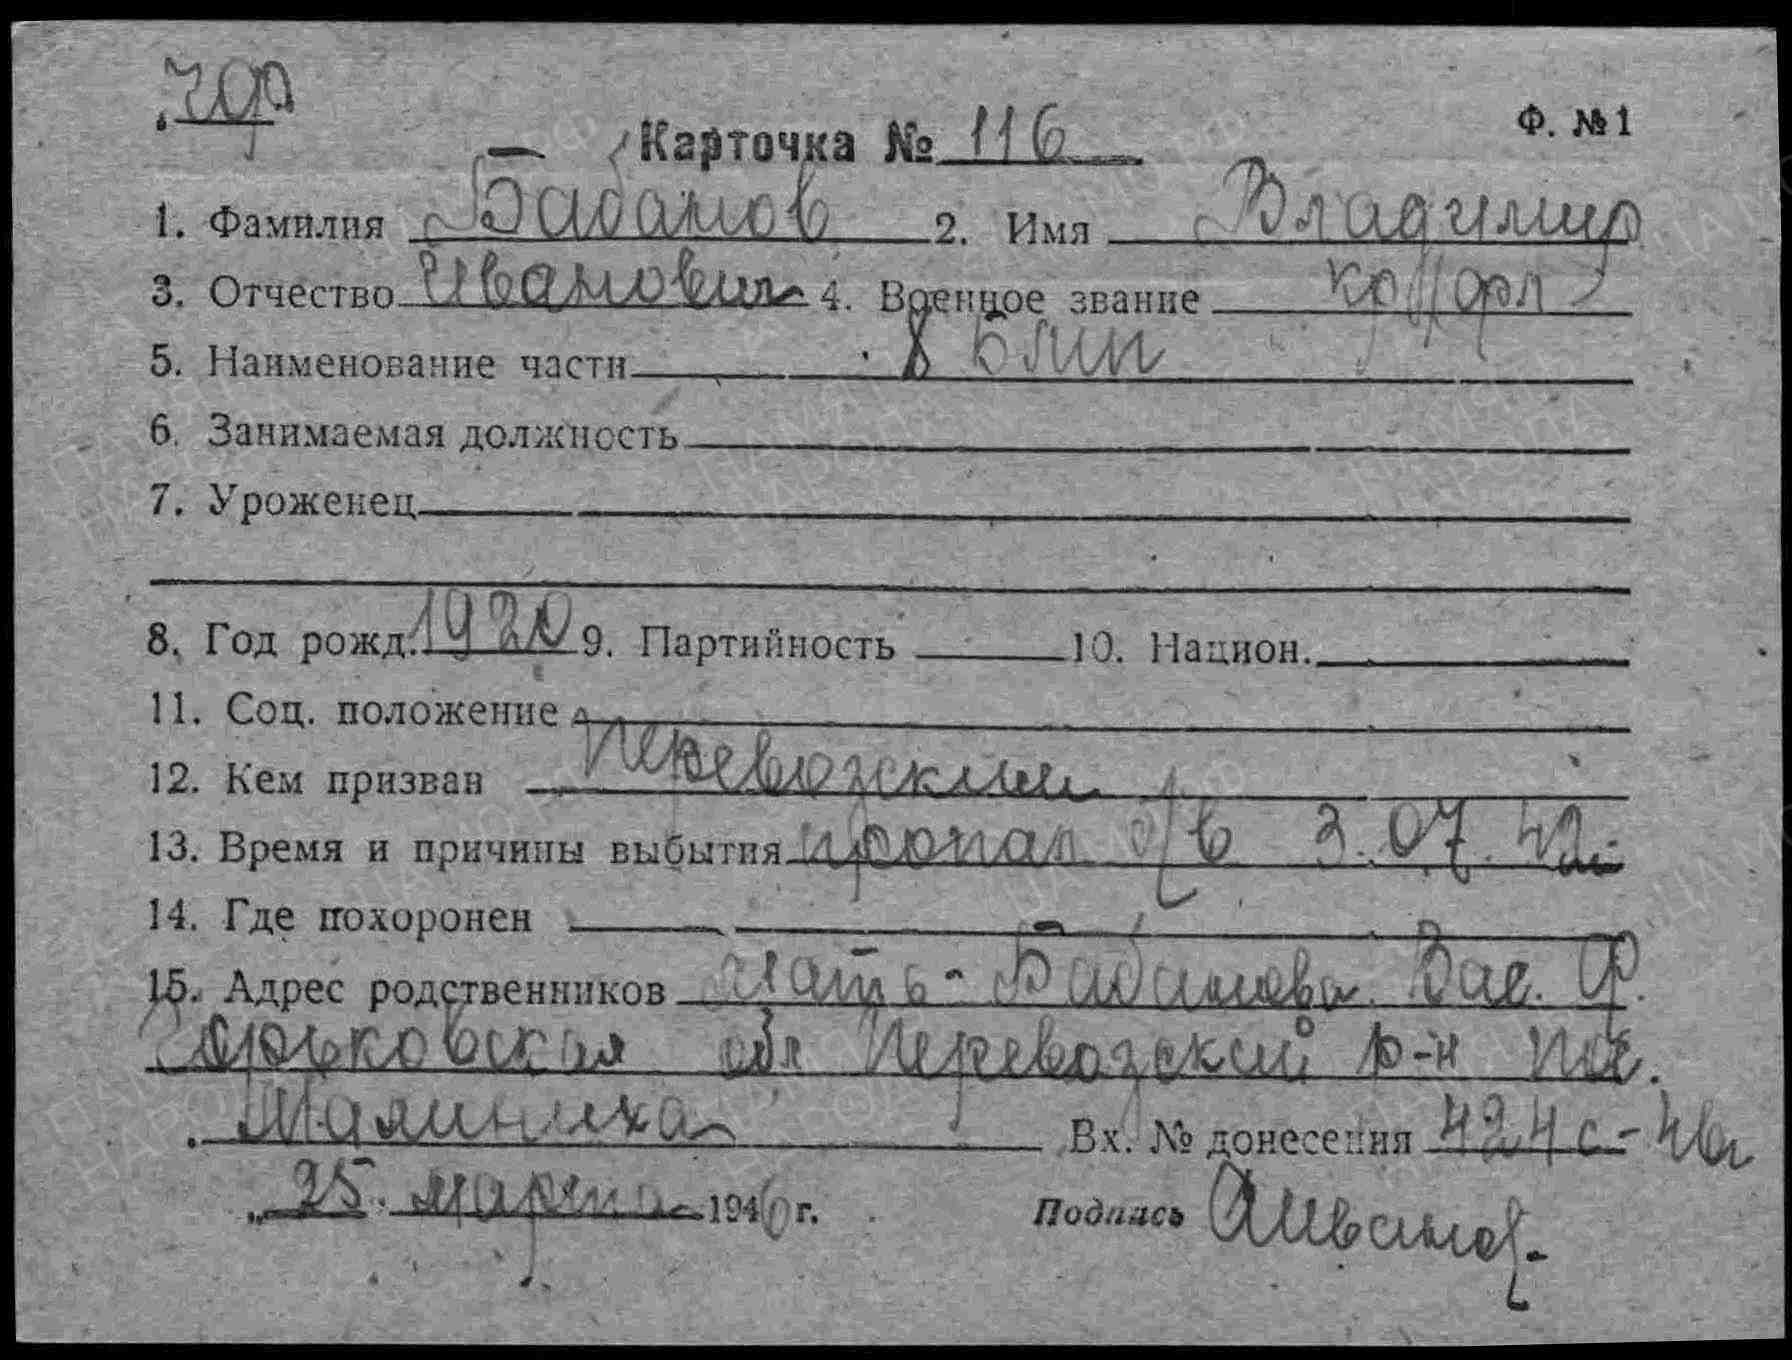 ЧФ
Карточка № 116
Ф. № 1
1. Фамилия Бабанов 2. Имя Владимир
3. Отчество Иванович 4. Военное звание кр/фл
5. Наименование части 8 Бмп
6. Занимаемая должность
7. Уроженец
8. Год рожд. 1920 9. Партийность 10. Национ.
11. Соц. положение
12. Кем призван Перевозским
13. Время и причины выбытия пропал б/в 3.07.42г.
14. Где похоронен
15. Адрес родственников мать - Бабанова Вас. Ф.
Горьковская обл Перевозский р-н пос.
Палиниха Вх. № донесения 424с-46г
„25" марта 1946 г. Подпись АИванов